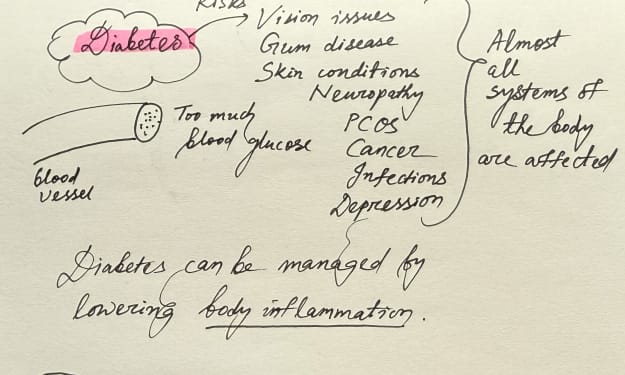 Risks
Diabetes
Vision issues
Gum disease
Skin conditions
Neuropathy
PCOS
Cancer
Infections
Depression
Almost
all
systems of
the body
are affected
Too much
blood glucose
blood
vessel
Diabetes can be managed by
lowering body inflammation.